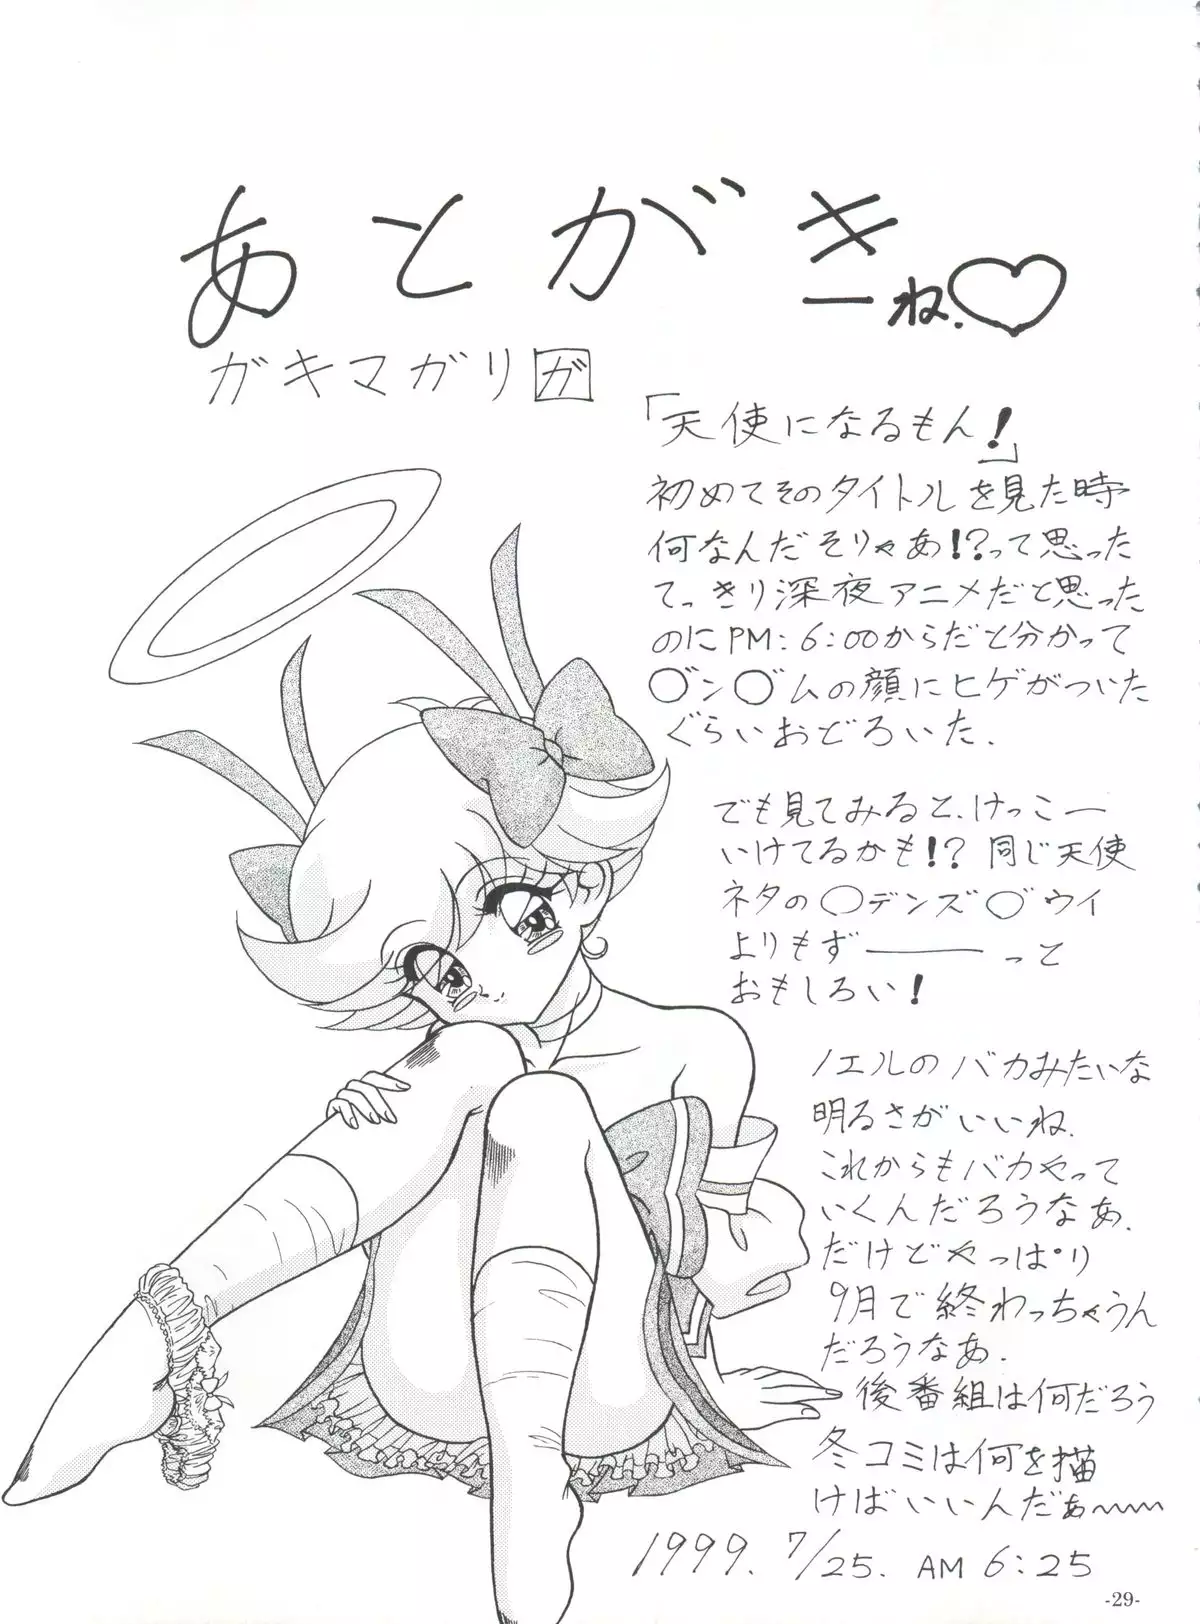 あとがき
ーね.♡
ガキマガリ ガ
「天使になるもん!」
初めてそのタイトルを見た時
何なんだそりゃあ!?って思った
てっきり深夜アニメだと思った
のにPM:6:00からだと分かって
○゛ン○゛ムの顔にヒゲがついた
ぐらいおどろいた.
でも見てみると、けっこー
いけてるかも!?同じ天使
ネタの○デンズ○゛ウイ
よりもずーーーって
おもしろい!
ノエルのバカみたいな
明るさがいいね.
これからもバカやって
いくんだろうなぁ.
だけどやっぱり
9月で終わっちゃうん
だろうなぁ.
後番組は何だろう
冬コミは何を描
けばいいんだぁ〜〜
1999. 7/25. AM 6:25
-29-